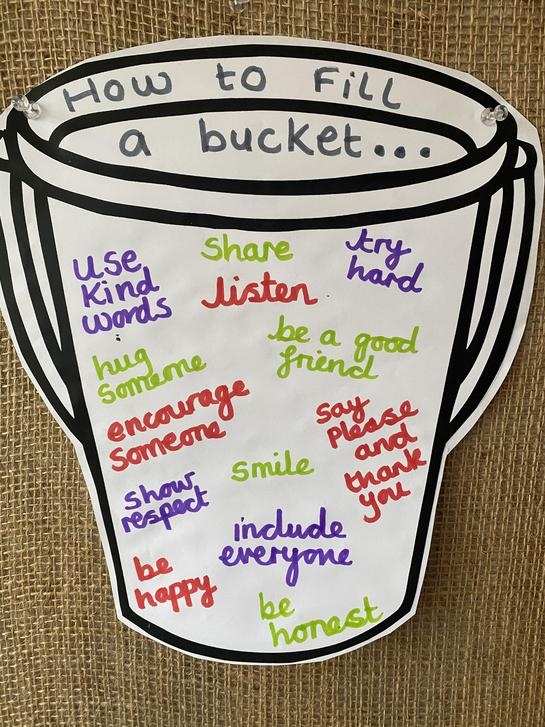 How to Fill
a bucket...
use
kind
words
share
try
hard
listen
be a good
friend
hug
someone
encourage
someone
say
please
and
thank
you
smile
show
respect
include
everyone
be
happy
be
honest